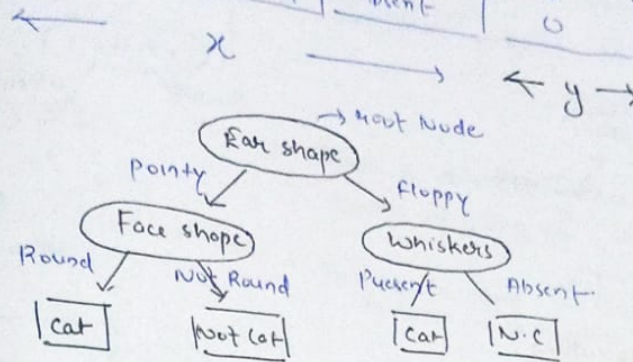 0
x
y
→ Root Node
Ear shape
Pointy
Floppy
Face shape
Whiskers
Round
Not Round
Present
Absent
Cat
Not Cat
Cat
N.C